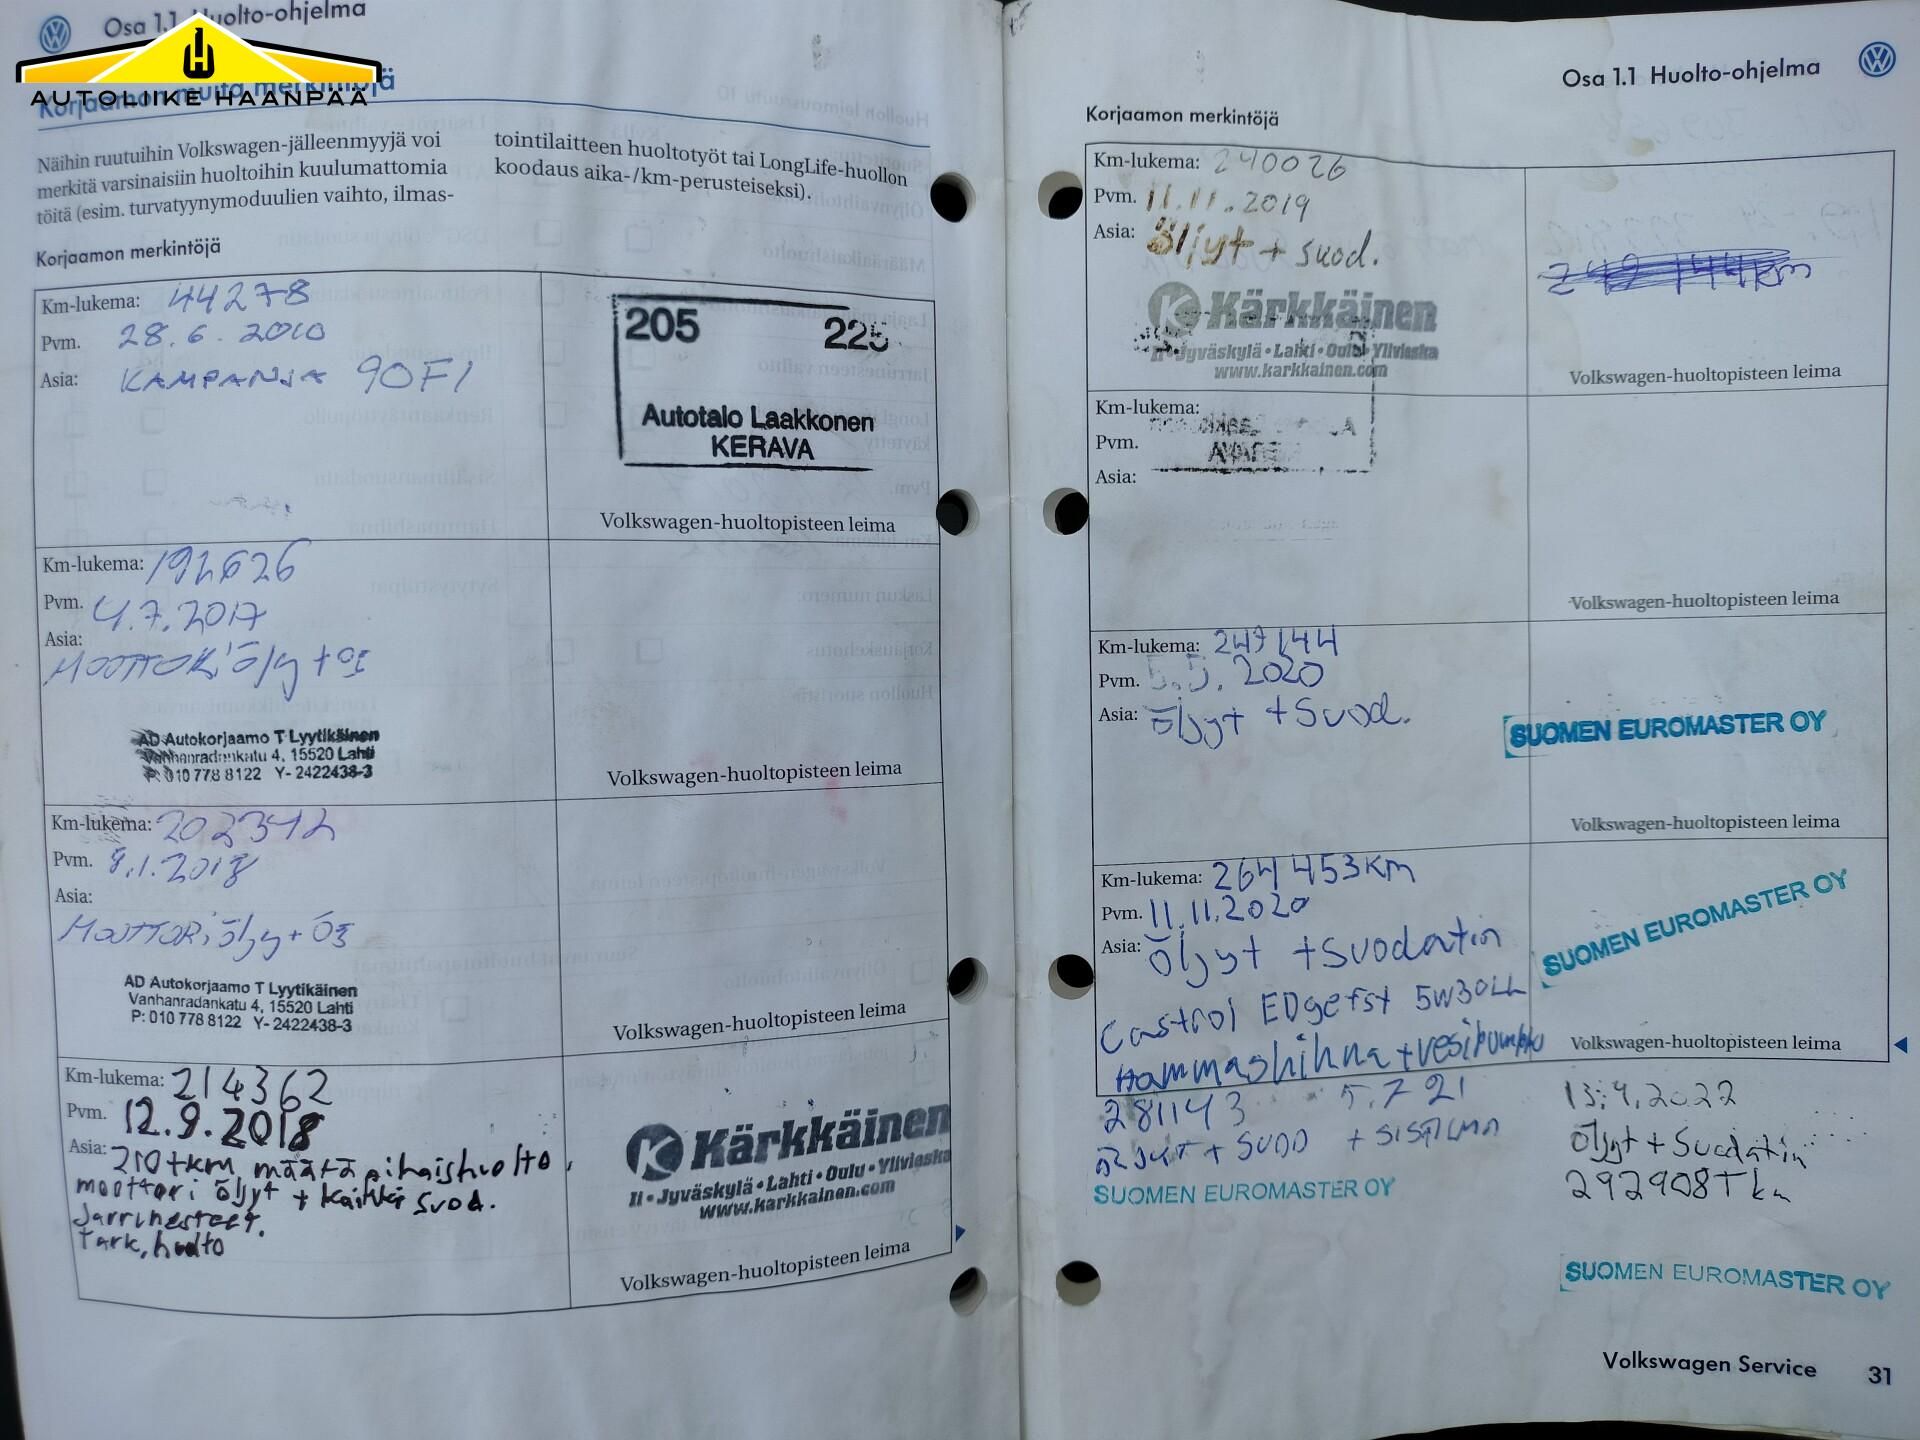 Osa 1.1 Huolto-ohjelma
AUTOLIIKE HAANPÄÄ
Korjaamon muita merkintöjä
Näihin ruutuihin Volkswagen-jälleenmyyjä voi
merkitä varsinaisiin huoltoihin kuulumattomia
töitä (esim. turvatyynymoduulien vaihto, ilmas-
tointilaitteen huoltotyöt tai LongLife-huollon
koodaus aika-/km-perusteiseksi).
Korjaamon merkintöjä
Km-lukema: 44278
Pvm. 28.6.2010
Asia: KAMPANJA 90F1
205 225
Autotalo Laakkonen
KERAVA
Volkswagen-huoltopisteen leima
Km-lukema: 192626
Pvm. 4.7.2017
Asia:
MOOTTORiöljy +
AD Autokorjaamo T Lyytikäinen
Vanhanradankatu 4, 15520 Lahti
P: 010 778 8122 Y- 2422438-3
Volkswagen-huoltopisteen leima
Km-lukema: 202342
Pvm. 8.1.2018
Asia:
MOOTTORiöljy +
AD Autokorjaamo T Lyytikäinen
Vanhanradankatu 4, 15520 Lahti
P: 010 778 8122 Y- 2422438-3
Volkswagen-huoltopisteen leima
Km-lukema: 214362
Pvm. 12.9.2018
Asia: 210tkm määräaikaishuolto,
moottori öljyt + kaikki suod.
Jarrunesteet.
tark, huolto
Kärkkäinen
Ii • Jyväskylä • Lahti • Oulu • Ylivieska
www.karkkainen.com
Volkswagen-huoltopisteen leima
Osa 1.1 Huolto-ohjelma
Korjaamon merkintöjä
Km-lukema: 240026
Pvm. 11.11.2019
Asia: öljyt + suod.
Kärkkäinen
Ii • Jyväskylä • Lahti • Oulu • Ylivieska
www.karkkainen.com
Volkswagen-huoltopisteen leima
Km-lukema:
Pvm.
Asia:
Volkswagen-huoltopisteen leima
Km-lukema: 247144
Pvm. 5.5.2020
Asia: öljyt + Suod.
SUOMEN EUROMASTER OY
Volkswagen-huoltopisteen leima
Km-lukema: 264453km
Pvm. 11.11.2020
Asia: öljyt + suodatin
Castrol EDge fst 5W30LL
Hammashihna + vesipumppu
SUOMEN EUROMASTER OY
Volkswagen-huoltopisteen leima
281143 5.7 21
öLJYT + SUOD + SISÄILMA
SUOMEN EUROMASTER OY
13.4.2022
öljyt + Suodatin
292908Tkm
SUOMEN EUROMASTER OY
Volkswagen Service 31